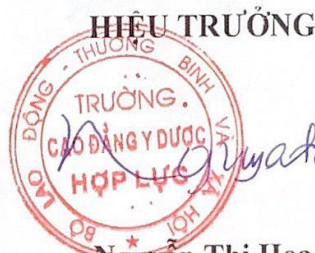 HIỆU TRƯỞNG
BỘ LAO ĐỘNG - THƯƠNG BINH VÀ XÃ HỘI
TRƯỜNG
CAO ĐẲNG Y DƯỢC
HỢP LỰC
Nguyễn Thị Hoa